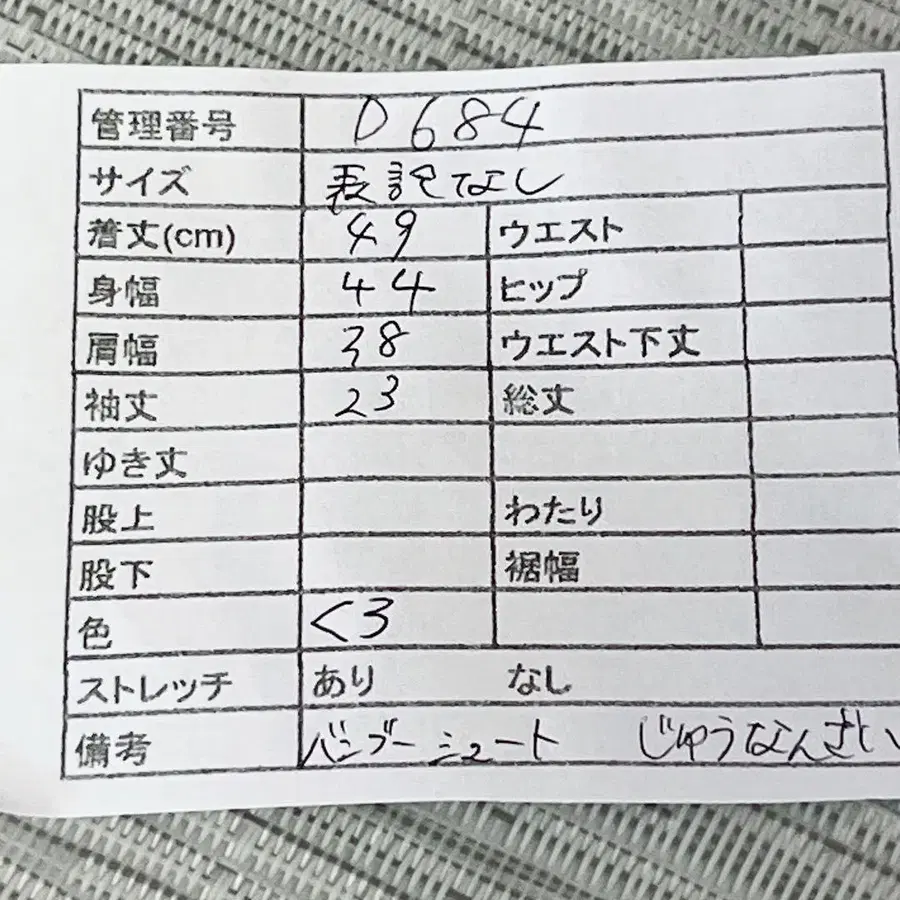 管理番号 D684
サイズ 表記なし
着丈(cm) 49 ウエスト
身幅 44 ヒップ
肩幅 38 ウエスト下丈
袖丈 23 総丈
ゆき丈
股上 わたり
股下 裾幅
色 くろ
ストレッチ あり なし
備考 バンブーシュート じゅうなんざい